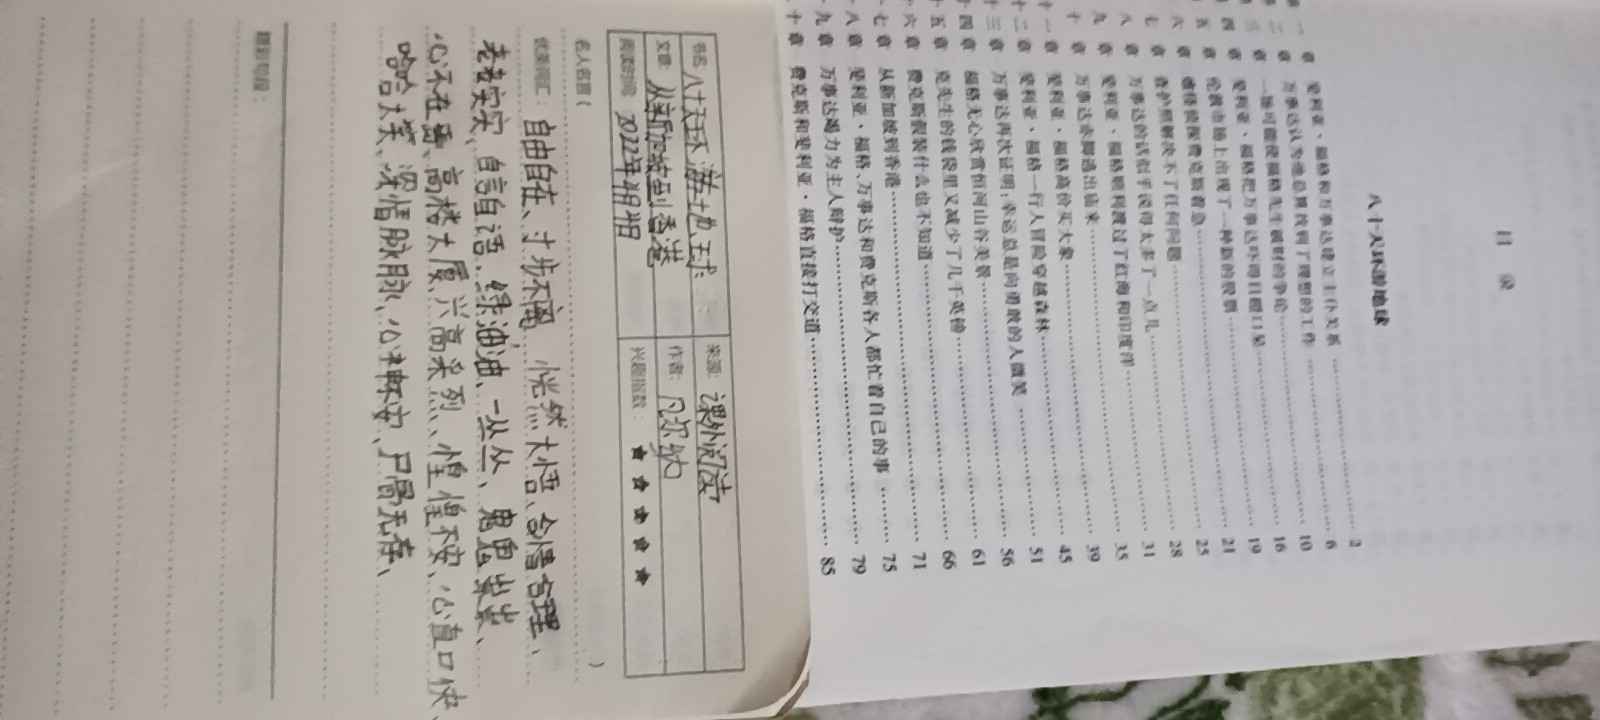 目 录
八十天环游地球
第 一 章 斐利亚·福格和万事达建立主仆关系 2
第 二 章 万事达认为他总算找到了理想的工作 6
第 三 章 一场可能使福格先生破财的争论 10
第 四 章 斐利亚·福格把万事达吓得目瞪口呆 16
第 五 章 伦敦市场上出现了一种新的股票 19
六 章 难怪侦探费克斯着急 21
七 章 查护照解决不了任何问题 25
八 章 万事达的话似乎说得太多了一点儿 28
九 章 斐利亚·福格顺利渡过了红海和印度洋 31
十 章 万事达赤脚逃出庙来 35
十一 章 斐利亚·福格高价买大象 39
十二 章 斐利亚·福格一行人冒险穿越森林 45
十三 章 万事达再次证明:幸运总是向勇敢的人微笑 51
十四 章 福格无心欣赏恒河山谷美景 56
十五 章 克先生的钱袋里又减少了几千英镑 61
十六 章 费克斯假装什么也不知道 66
十七 章 从新加坡到香港 71
十八 章 斐利亚·福格、万事达和费克斯各人都忙着自己的事 75
十九 章 万事达竭力为主人辩护 79
二十 章 费克斯和斐利亚·福格直接打交道 85
书名: 八十天环游地球 来源: 课外阅读
文章: 从新加坡到香港 作者: 凡尔纳
阅读时间: 2022年 兴趣指数: ★ ★ ★ ★ ★
名人名言( )
优美词汇: 自由自在、寸步不离 恍然大悟、合情合理、
老老实实、自言自语、绿油油、一丛丛、鬼鬼祟祟、
心不在焉、高楼大厦、兴高采列、惶惶不安、心直口快、
哈哈大笑、深情脉脉、心神不安、尸骨无存、
精彩句段: